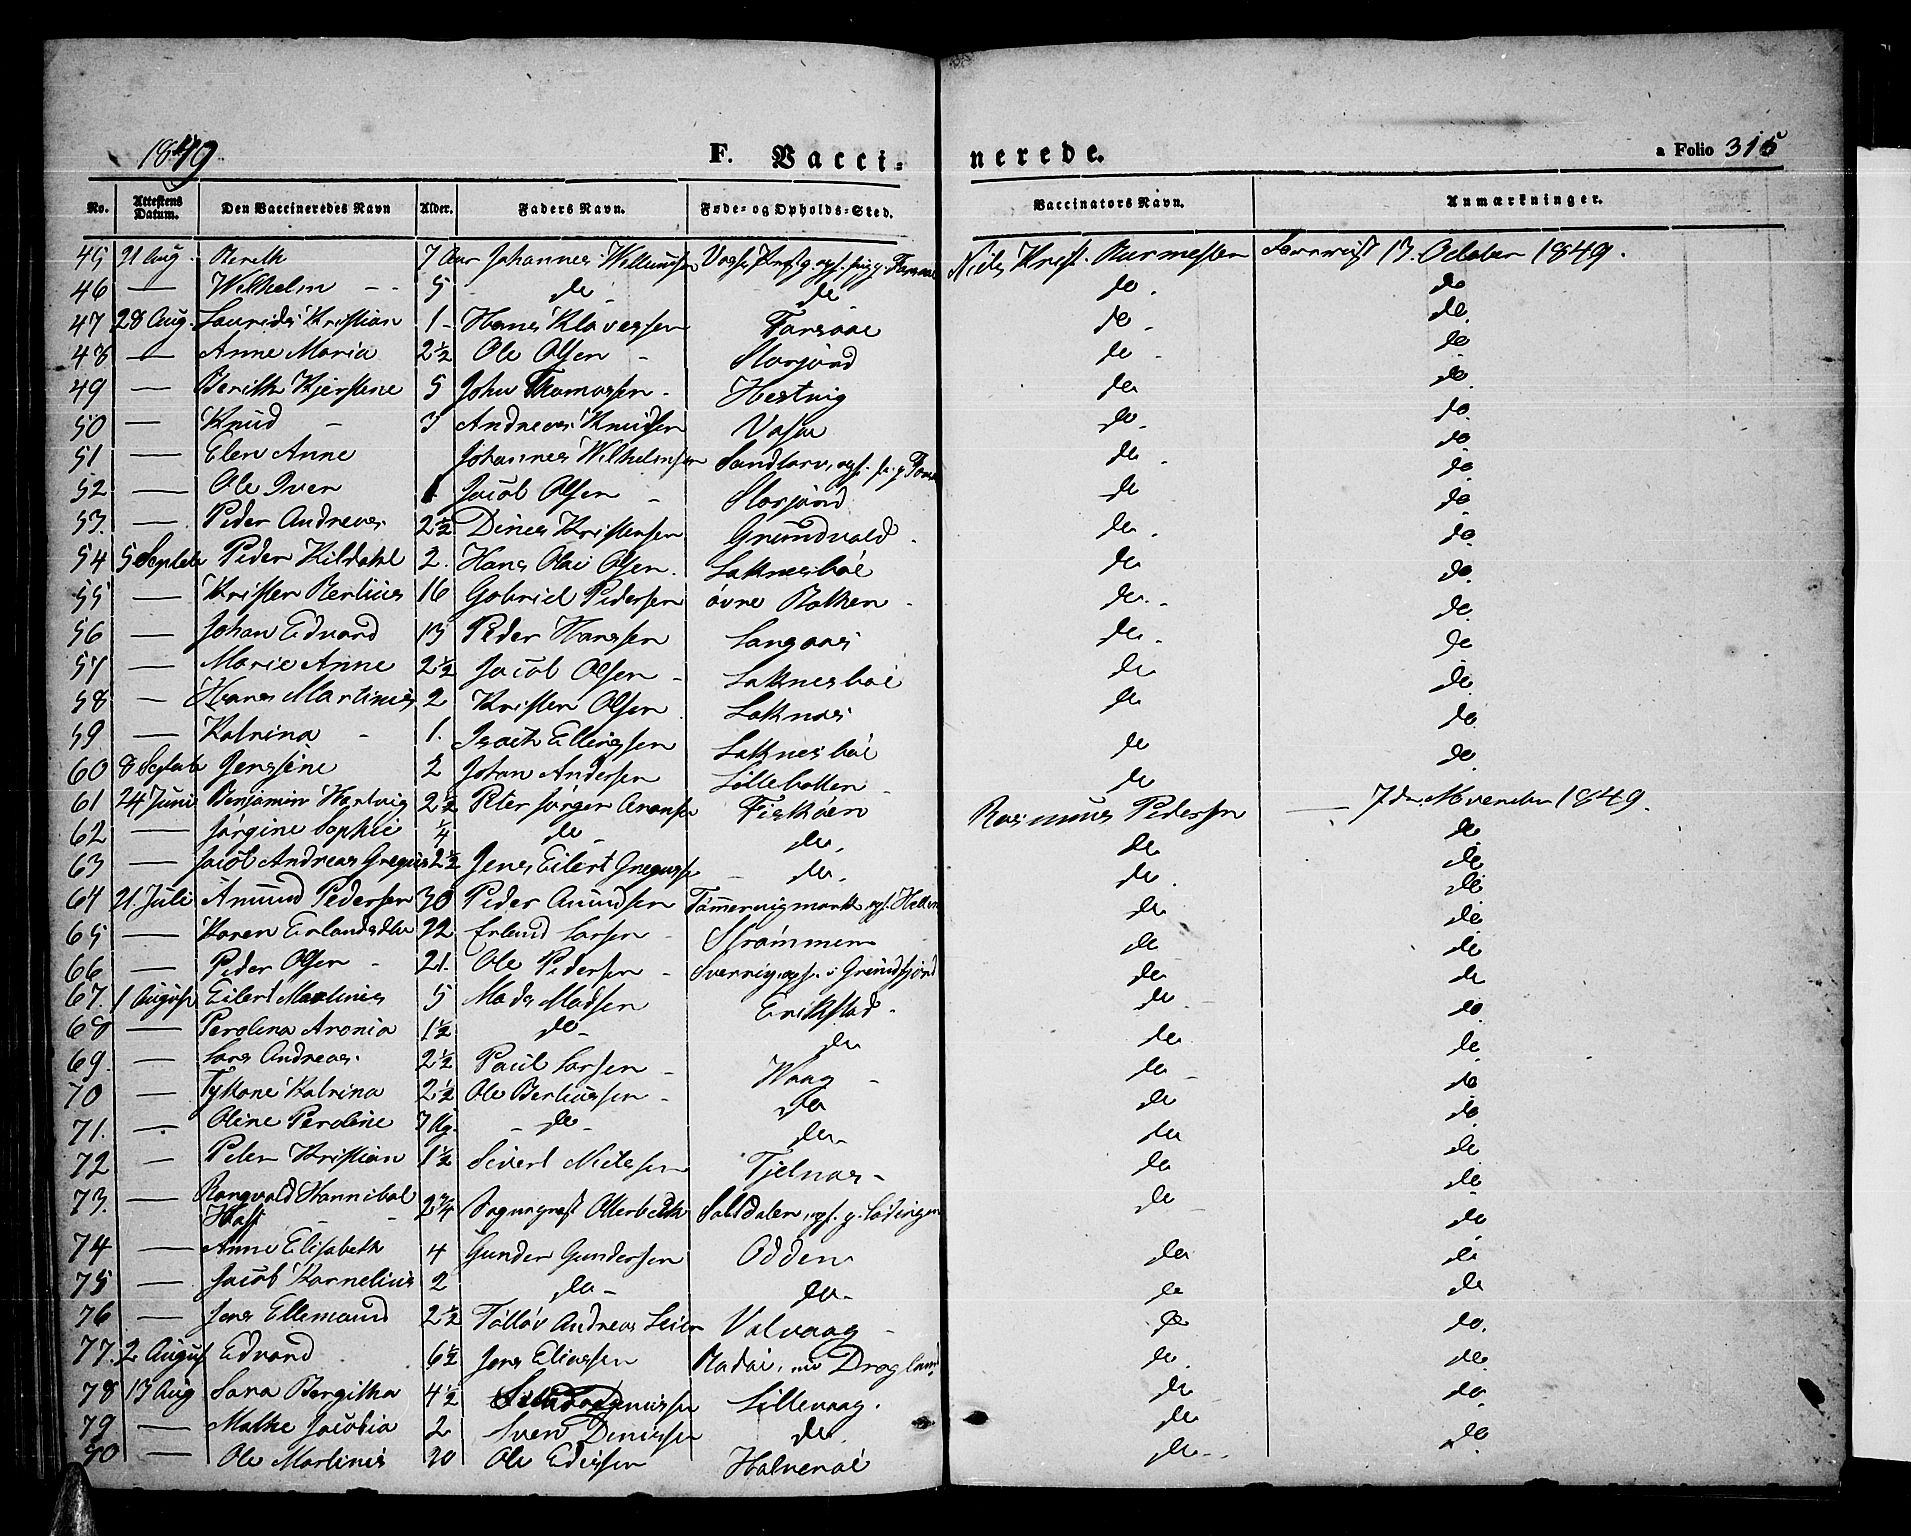 1849 F. Vacci- nerede. a Folio 315
No. Attestens Datum. Den Vaccineredes Navn Alder. Faders Navn. Føde- og Opholds-Sted. Vaccinators Navn. Anmærkninger.
45 21 Aug. Berith 7 Aar Johannes Willumsen Niels Krist. Burmester 13 October 1849.
46 — Wilhelm 5 do do do do
47 28 Aug. Laurids Kristian 1 Hans Klavessen Torsaae do do
48 — Anne Maria 2½ Ole Olsen Storjord do do
49 — Berith Kjerstine 5 John Thomassen Hestvig do do
50 — Knud 3 Andreas Knudsen do do
51 — Elen Anne Johannes Wilhelmsen do do
52 — Ole Iver 1 Jacob Olsen Storjord do do
53. — Peder Andreas 2½ Dines Kristensen Grundvald do do
54 5 Septeb Peder Kildahl 2. Hans Olai Olsen Laknesbøe do do
55 — Kristen Berlius 16 Gabriel Pedersen øvre Botten do do
56 — Johan Edvard 13 Peder Hanssen Langaas do do
57 — Marie Anne 2½ Jacob Olsen Laknesbøe do do
58 — Hans Martinus 2 Kristen Olsen Laknes do do
59 — Katrina 1. Isach Ellingsen Laknesbøe do do
60 8 Septeb Jensine 2 Johan Andersen Lillebotten do do
61 24 Juni Benjamin Hartvig 2½ Peter Jørgen Aronsen Fiskøen Rasmus Pedersen — 7de November 1849.
62 — Jørgine Sophie ¼ do do. do do
63 — Jacob Andreas Gregus 2½ Jens Eilert Gregussen do. do do
64 21 Juli Amund Pedersen 30 Peder Amundsen do do
65 — Karen Erlandsdtr 22 Erland Larsen Strømmen do do
66 — Peder Olsen 21. Ole Pedersen Svervig, ops. i Grundfjord do do
67. 1 August Eilert Martinus 5 Mads Madsen Erikstad do do
68 — Perolina Aronia 1½ do do do do
69. — Lars Andreas 2½ Paul Larsen Waag do do
70 — Katrina 2½ Ole Berliussen do do do
71. — Oline Peroline do do do do
72 — Peter Kristian 1½ Sivert Nielsen Tjelnas do do
73. — Rangvald Hannibal 2¾ Otterbech Saltdalen, ops. p. Lødingen do do
74 — Anne Elisabeth 4 Gunder Gundersen Odden do do
75 — Jacob Kornelius 2 do do do do
76 — Jens Ellemand 2½ Tolløv Andreas Valvaag do do
77. 2 August Edvard 6½ Jens Eliassen do do
78 13 Aug Sara Bergitha 4½ Lillevaag. do do
79 — Malke Jacobia 2 Sven Denissen do do do
80 — Ole Martinus 20 Ole Edissen Halvenøe do